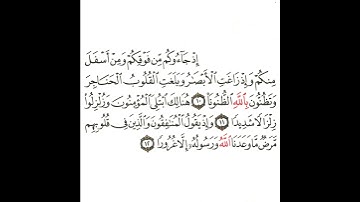 إِذْ جَآءُوكُم مِّن فَوْقِكُمْ وَمِنْ أَسْفَلَ
مِنكُمْ وَإِذْ زَاغَتِ ٱلْأَبْصَٰرُ وَبَلَغَتِ ٱلْقُلُوبُ ٱلْحَنَاجِرَ
وَتَظُنُّونَ بِٱللَّهِ ٱلظُّنُونَا۠ ١٠ هُنَالِكَ ٱبْتُلِىَ ٱلْمُؤْمِنُونَ وَزُلْزِلُوا۟
زِلْزَالًا شَدِيدًا ١١ وَإِذْ يَقُولُ ٱلْمُنَٰفِقُونَ وَٱلَّذِينَ فِى قُلُوبِهِم
مَّرَضٌ مَّا وَعَدَنَا ٱللَّهُ وَرَسُولُهُۥٓ إِلَّا غُرُورًا ١٢